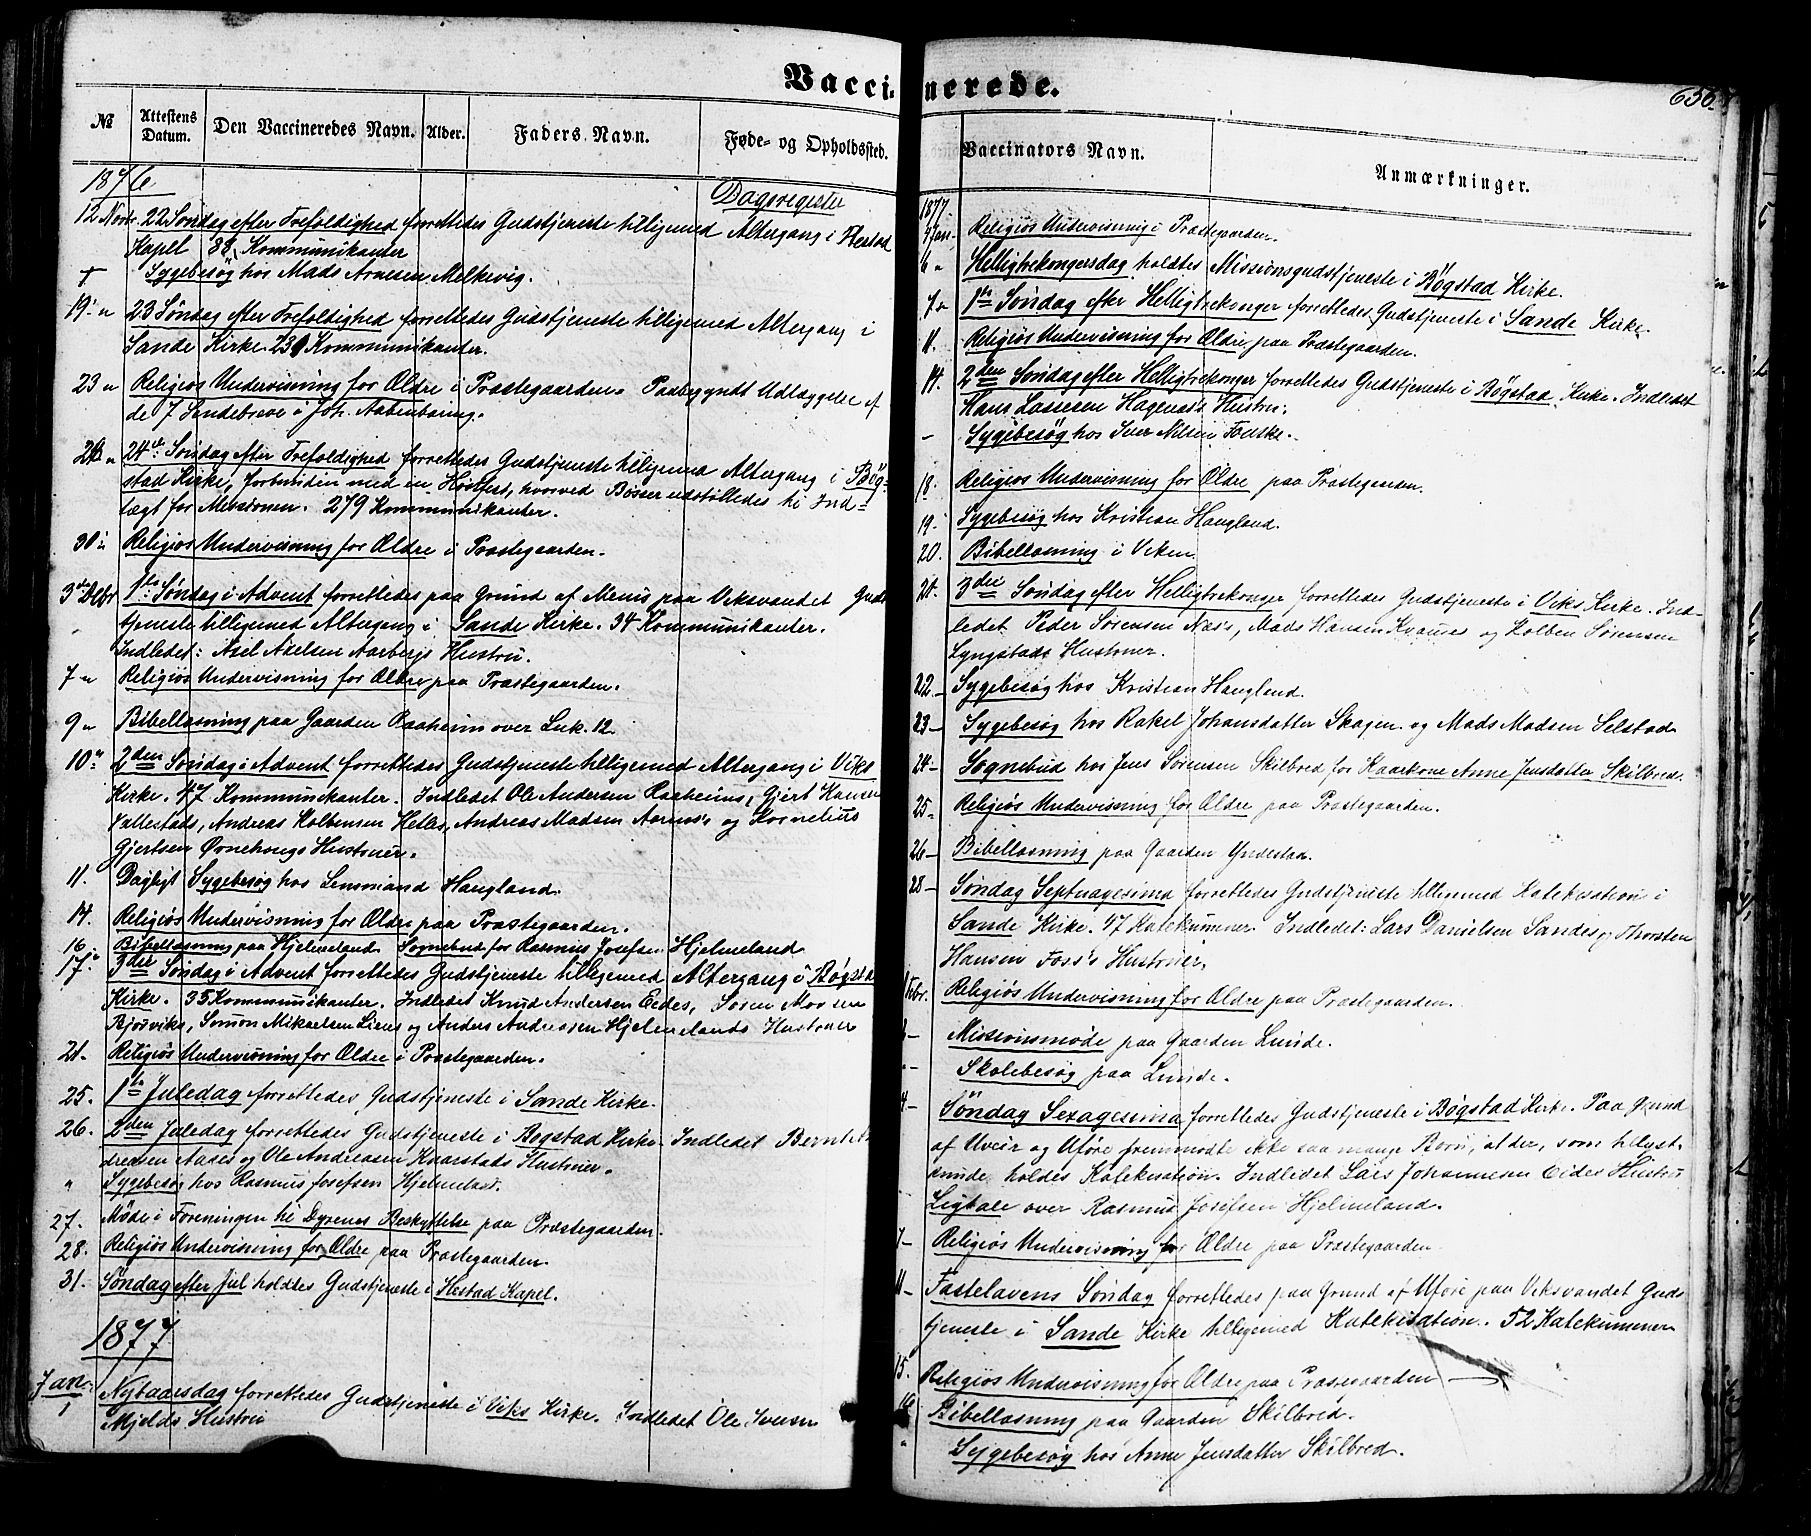 Vaccinerede.
656
№
Attestens Datum.
Den Vaccineredes Navn.
Alder.
Faders Navn.
Føde- og Opholdssted.
1876
Dagsregister
12 Novbr. 22 Søndag efter Trefoldighed forrettedes Gudstjeneste tilligemed Altergang i Hestad
Kapel 88 Kommunikanter
Sygebesøg hos Mads Arnesen Melkevig.
19 " 23 Søndag efter Trefoldighed forrettedes Gudstjeneste tilligemed Altergang i
Sande Kirke. Kommunikanter.
23 " Religiøs Undervisning for Ældre i Præstegaarden. Paabegyndt Udlæggelse af
de 7 Sendebreve i Joh. Aabenbaring.
26 " 24de Søndag efter Trefoldighed forrettedes Gudstjeneste tilligemed Altergang i Bög-
stad Kirke, forbunden med en Høstfest, hvorved Bøsser udstilledes til Ind-
tægt for Missionen. 279 Kommunikanter.
30 " Religiøs Undervisning for Ældre i Præstegaarden.
3die Decbr 1ste Søndag i Advent forrettedes paa Grund af Menis paa Viksvandet Guds
tjeneste tilligemed Altergang i Sande Kirke. 34 Kommunikanter.
Indledet: Axel Axelsen Aarbergs Hustru.
7 " Religiøs Undervisning for Ældre paa Præstegaarden.
9 " Bibellæsning paa Gaarden Raaheim over Luk. 12.
10 " 2den Søndag i Advent forrettedes Gudstjeneste tilligemed Altergang i Viks
Kirke. 47 Kommunikanter. Indledet Ole Andersen Raaheims, Gjert Hansen
Vallestads, Andreas Kolbensen Hetles, Andreas Madsen Aarnes's og Kornelius
Gjertsen Ørnehaugs Hustruer.
11. Dagligt Sygebesøg hos Lensmand Haugland.
14. Religiøs Undervisning for Ældre paa Præstegaarden.
16 Bibellæsning paa Hjelmeland. Sognebud for Rasmus Josefsen Hjelmeland
17. 3die Søndag i Advent forrettedes Gudstjeneste tilligemed Altergang i Bøgstad
Kirke. 35 Kommunikanter. Indledet Knud Andersen Eides, Søren Monsen
Bjørviks, Simon Mikaelsen Liens og Anders Andreasen Hjelmelands Hustruer
21. Religiøs Undervisning for Ældre i Præstegaarden.
25. 1ste Juledag forrettedes Gudstjeneste i Sande Kirke.
26. 2den Juledag forrettedes Gudstjeneste i Bøgstad Kirke. Indledet Bernt An
dreasen Aases og Ole Andreasen Kaarstads Hustruer.
" Sygebesøg hos Rasmus Josefsen Hjelmeland.
27. Møde i Foreningen til Dyrenes Beskyttelse paa Præstegaarden.
28. Religiøs Undervisning for Ældre paa Præstegaarden.
31. Søndag efter Jul holdtes Gudstjeneste i Hestad Kapel.
1877
Jan. 1 Nytaarsdag forrettedes Gudstjeneste i Viks Kirke. Indledet Ole Iversen
Mjelds Hustru
Vaccinators Navn.
Anmærkninger.
1877
4 Jan. Religiøs Undervisning i Præstegaarden.
6 " Helligtrekongersdag holdtes Missionsgudstjeneste i Bögstad Kirke.
7 " 1ste Søndag efter Helligtrekonger forrettedes Gudstjeneste i Sande Kirke.
11. Religiøs Undervisning for Ældre paa Præstegaarden.
14. 2den Søndag efter Helligtrekonger forrettedes Gudstjeneste i Bögstad Kirke. Indledet
Hans Lassesen Hagenes's Hustru.
– Sygebesøg hos Iver Nilsen Fodske.
18. Religiøs Undervisning for Ældre paa Præstegaarden.
19. Sygebesøg hos Kristian Haugland.
20. Bibellæsning i Viken
21. 3die Søndag efter Helligtrekonger forrettedes Gudstjeneste i Viks Kirke. Ind-
ledet Peder Sørensen Næs's, Mads Hansen og Kolben Sørensen
Lyngstads Hustruer.
22 – Sygebesøg hos Kristian Haugland.
23 – Sygebesøg hos Rakel Johansdatter Skogen og Mads Madsen Selstad
24 – Sognebud hos Jens Sørensen Skilbred for Kaarkone Anne Jensdatter Skilbred.
25. Religiøs Undervisning for Ældre paa Præstegaarden.
26 – Bibellæsning paa Gaarden Yndestad.
28 – Søndag Septuagesima forrettedes Gudstjeneste tilligemed Katekisation i
Sande Kirke. 47 Katekumener. Indledet: Lars Danielsen Sandes og Thorsten
Hansen Foss's Hustruer.
1 Febr. Religiøs Undervisning for Ældre paa Præstegaarden.
– Missionsmøde paa Gaarden Lunde.
– Skolebesøg paa Lunde.
4 – Søndag Sexagesima forrettedes Gudstjeneste i Bøgstad Kirke. Paa Grund
af Uveir og Uføre fremmødte ikke saa mange Børn, at der, som tilyst
kunde holdes Katekisation. Indledet Lars Johannesen Eides Hustru
Ligtale over Rasmus Josefsen Hjelmeland.
7 – Religiøs Undervisning for Ældre paa Præstegaarden.
11 – Fastelavens Søndag forrettedes paa Grund af Uføre paa Viksvandet Guds
tjeneste i Sande Kirke tilligemed Katekisation. 52 Katekumener
15. Religiøs Undervisning for Ældre paa Præstegaarden
16 Bibellæsning paa Gaarden Skilbred.
" Sygebesøg hos Anne Jensdatter Skilbred.